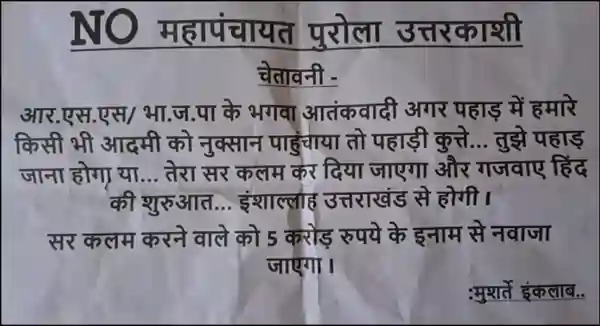 NO महापंचायत पुरोला उत्तरकाशी
चेतावनी -
आर.एस.एस/ भा.ज.पा के भगवा आतंकवादी अगर पहाड़ में हमारे
किसी भी आदमी को नुक्सान पाहुंचाया तो पहाड़ी कुत्ते... तुझे पहाड़
जाना होगा या... तेरा सर कलम कर दिया जाएगा और गजवाए हिंद
की शुरुआत... इंशाल्लाह उत्तराखंड से होगी ।
सर कलम करने वाले को 5 करोड़ रुपये के इनाम से नवाजा
जाएगा ।
:मुशर्ते इंकलाब..